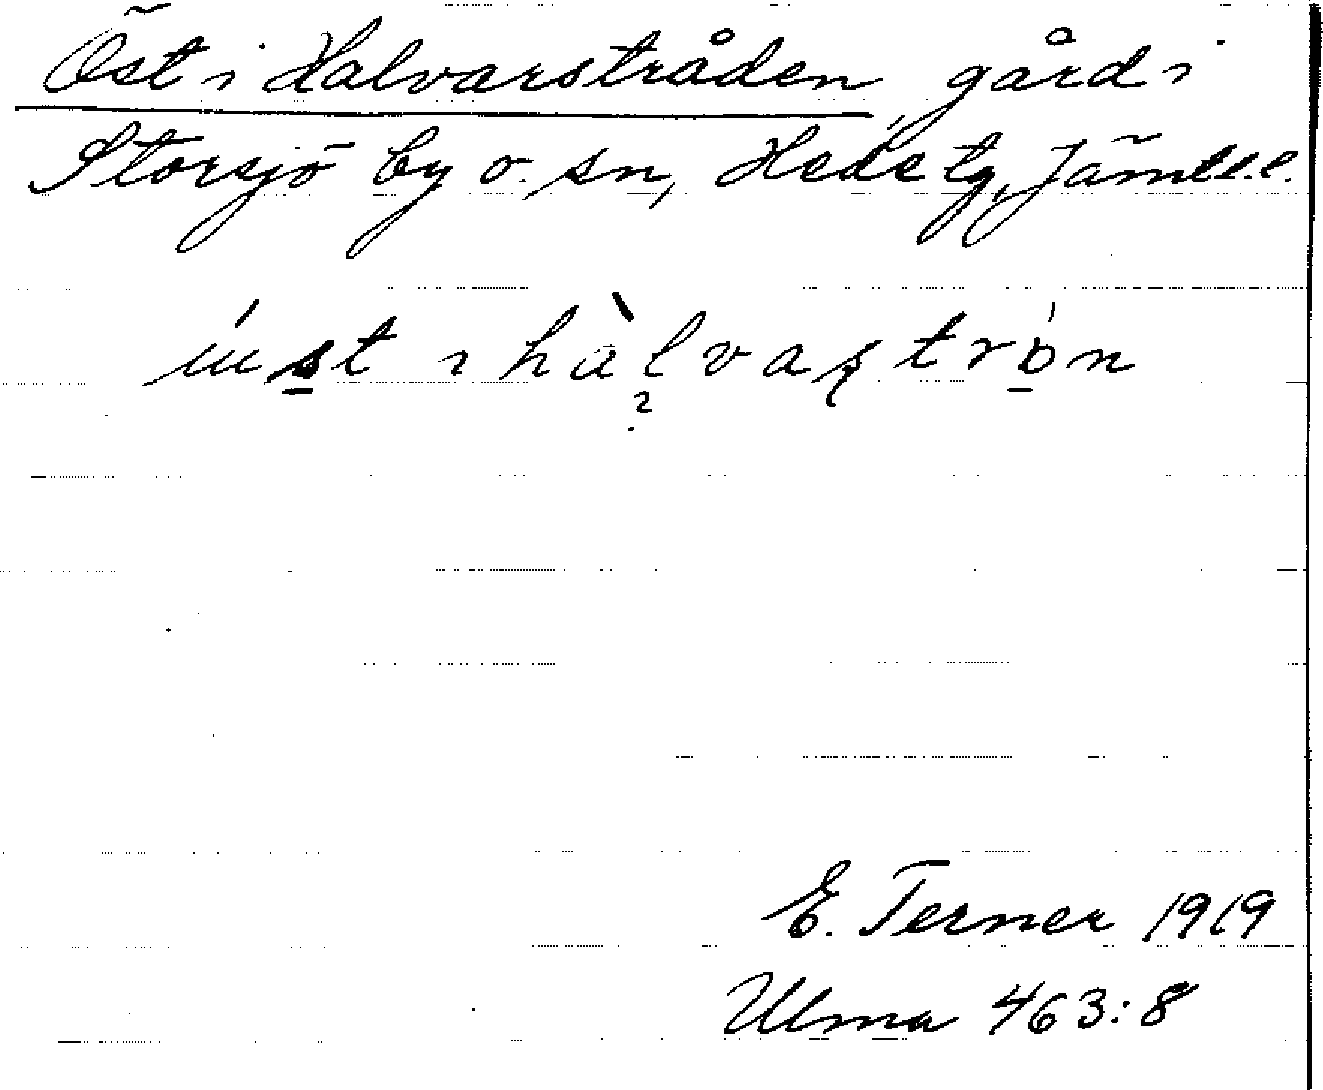 Öst i Halvarstråden, gård i
Storsjö by o. sn, Hede tg, Jämtl.l.
i hàlvaștrón
?
E. Terner 1919
Ulma 463:8